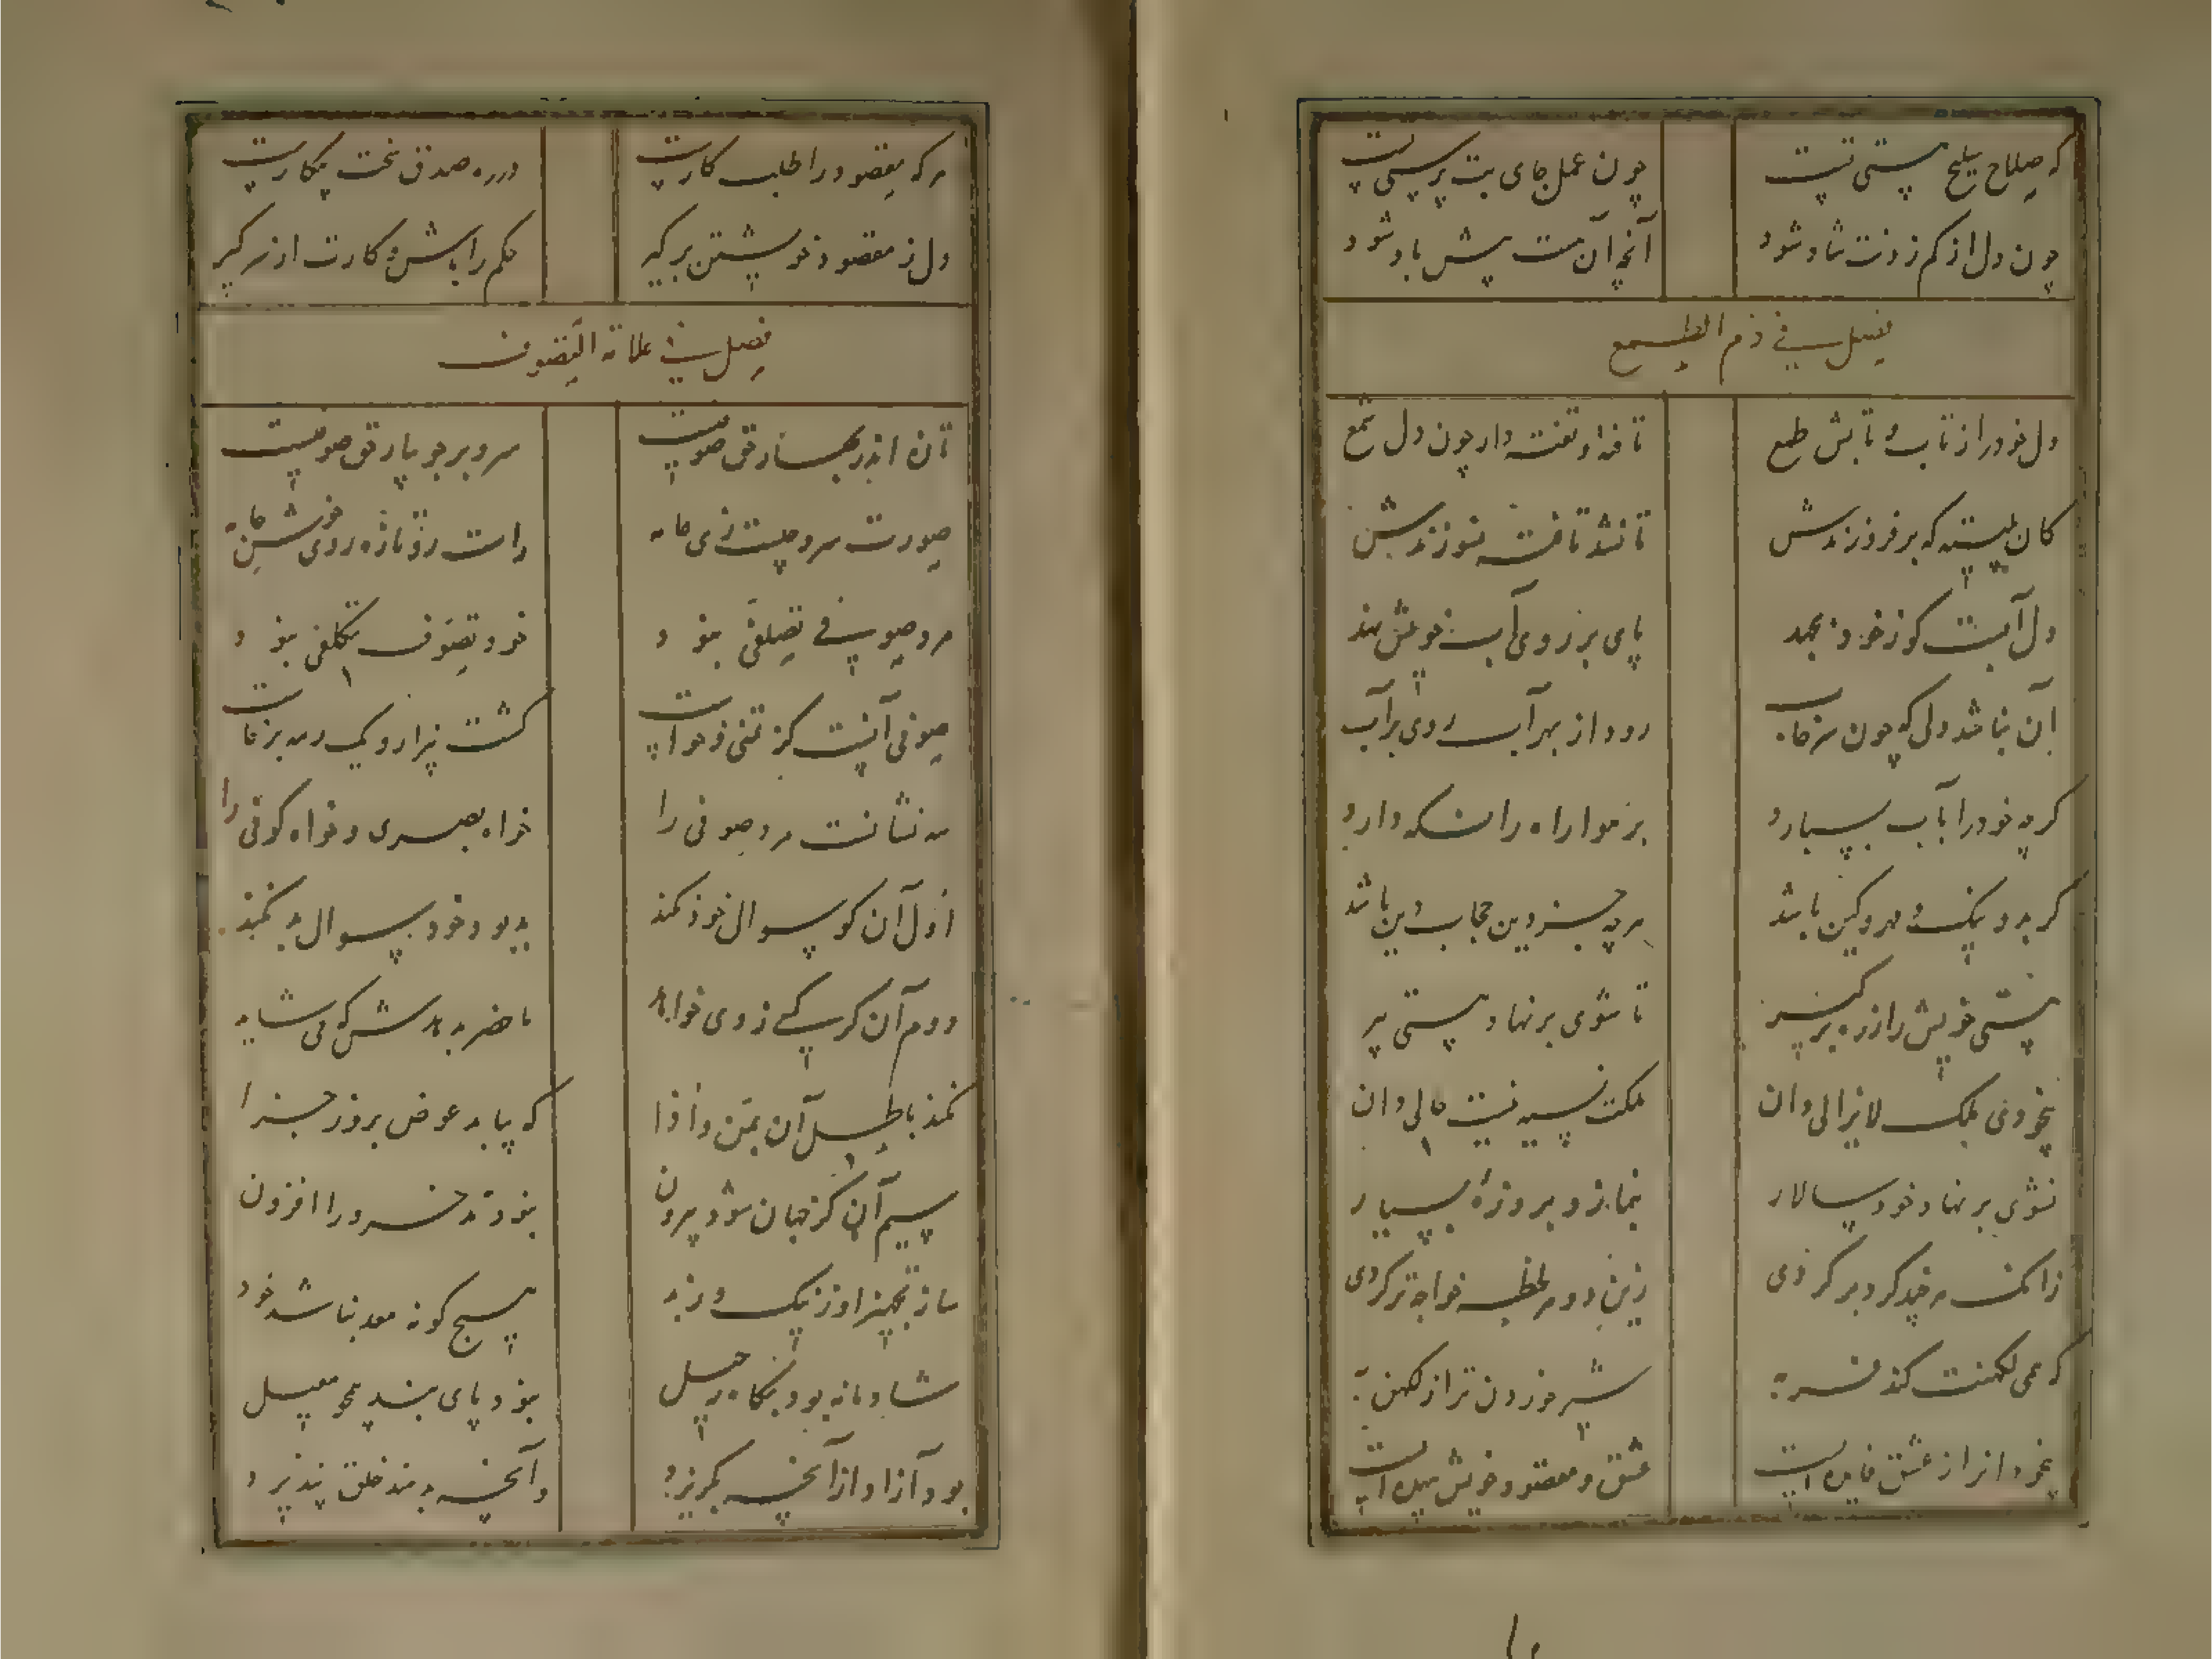 که صلاح سلیح پستی تست چون عمل جای بت پرستی تست
چون دل از کم زدنت شاد شود آنچه آن مست پیش باد شود
فصل فی ذم الطمع
دل خود را ز تاب و تابش طمع تافته و تفته دار چون دل شمع
که بر فروزندش تا نشد تافته نسوزندش
دل آنست کو ز خود بجهد پای بر روی آب خویش نهد
آن نباشد دلی که چون سرخاب رود از بهر آب روی بر آب
گرچه خود را بآب بسپارد بر هوا راه را نگه دارد
گر بد و نیک و مهر و کین باشد هر چه جز دین حجاب دین باشد
هستی خویش را ز ره برگیر تا شوی بر نهاد هستی میر
بیخودی ملک لایزالی دان ملکت نسیه نیست حالی دان
نشوی بر نهاد خود سالار بنماز و بروزه بسیار
زانکه هر چند گرد بر گردی زین دو هر لحظه خواجه تر گردی
شیر خوردن تراز
بیخود انرا ز عشق فایده است عشق و مقصود خویش بیهده است
هر که مقصود را طلب کارست در ره صدق سخت بیکارست
دل ز مقصود خویشتن برگیر حکم را باش و کارت از سر گیر
فصل فی علامة التصوف
تازه اندر بهار حق صوفیست سرو بر جویبار حق صوفیست
صورت سرو چیست زی عامه راست رو تازه روی خوش جامه
مرد صوفی تصلفی نبود خود تصوف تکلفی نبود
صوفی آنست کز تمنی و خواست گشت بیزار و یک ره برخاست
سه نشانست مرد صوفی را خواه بصری و خواه کوفی را
اول آن کو سوال خود نکند بد بود خود سوال بد نکند
دوم آن کر کسی ز وی خواهد ماحضر بدهدش که می شاید
نکند باطل آن بمن و اذا که بیابد عوض بروز جزا
سیم آن کز جهان شود بیرون نبود مدخر ورا افزون
ساز تجهیز او ز نیک و ز بد هیچ گونه معد نباشد خود
شادمانه بود بگاه رحیل نبود پای بند
بود آزاد از آنچه بگریزد وآنچه بدهند خلق نپذیرد